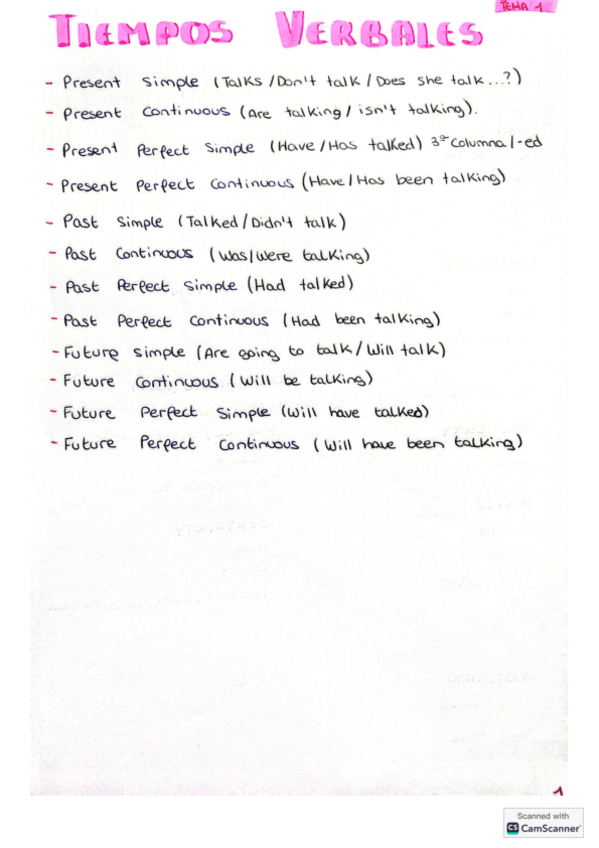 TEMA 1
TIEMPOS VERBALES
- Present simple (Talks/Don't talk/Does she talk...?)
- Present continuous (Are talking/isn't talking).
- Present Perfect Simple (Have/Has talked) 3ª columna/-ed
- Present perfect continuous (Have/Has been talking)
- Past simple (Talked/Didn't talk)
- Past continuous (Was/were talking)
- Past Perfect simple (Had talked)
- Past Perfect continuous (Had been talking)
- Future simple (Are going to talk/Will talk)
- Future continuous (Will be talking)
- Future Perfect Simple (Will have talked)
- Future Perfect continuous (Will have been talking)
1
Scanned with
CS CamScanner